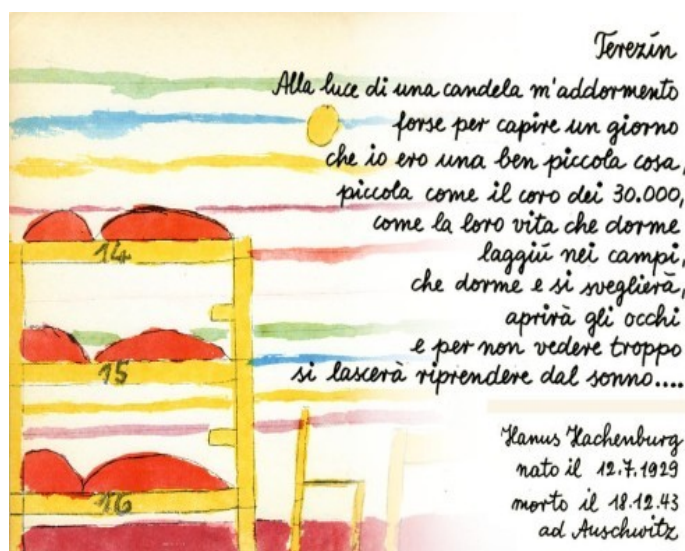 Terezín
Alla luce di una candela m'addormento
forse per capire un giorno
che io ero una ben piccola cosa,
piccola come il coro dei 30.000,
come la loro vita che dorme
laggiú nei campi,
che dorme e si sveglierà,
aprirà gli occhi
e per non vedere troppo
si lascerà riprendere dal sonno....
Hanus Hachenburg
nato il 12.7.1929
morto il 18.12.43
ad Auschwitz
14
15
16